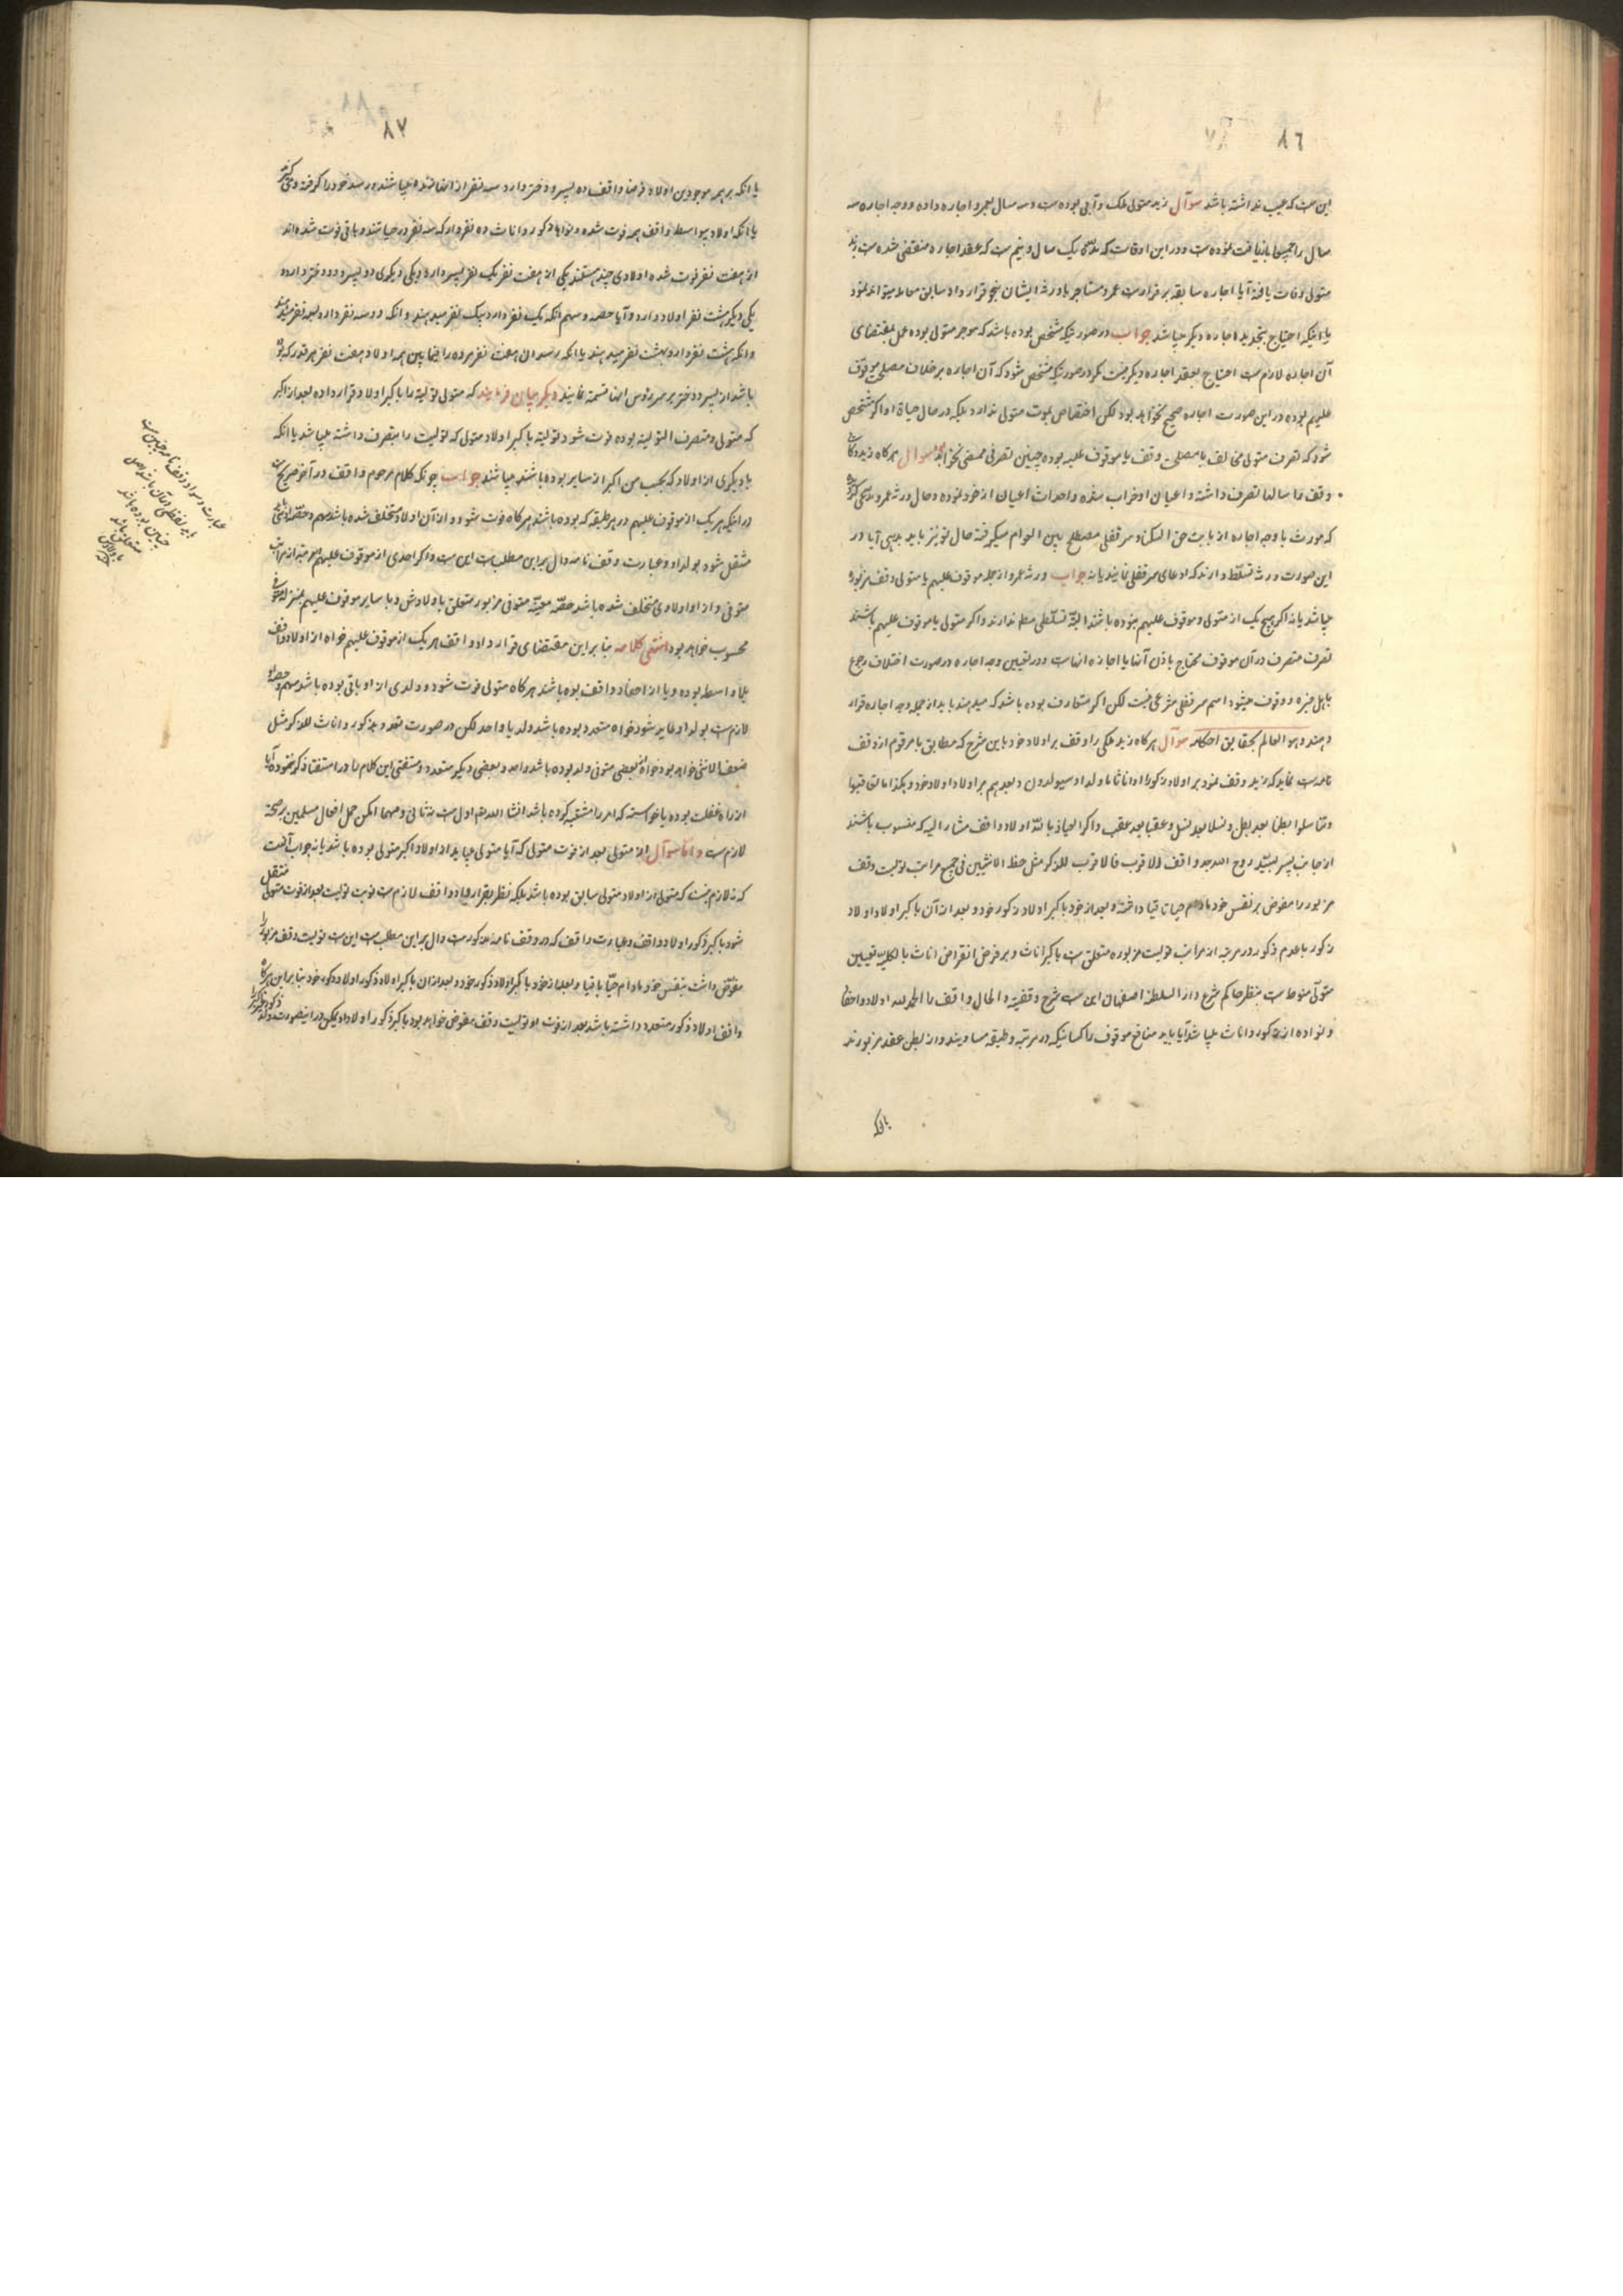 ٨٦
این است که عیب نداشته باشد سؤال زید متولی ملک وآبی بوده است وسه سال بعمرو اجاره داده ووجه اجاره سه
سال را بازیافت نموده است ودر این اوقات که یک سال ونیم است که عقد اجاره منقضی شده است زید
متولی وفات یافته آیا اجاره سابقه برقرار است عمرو مستاجر با ورثه ایشان بنحو قرار داد سابق معامله میتواند نمود
یا اینکه احتیاج بتجدید اجاره دیگر میباشد جواب در صورتیکه مشخص بوده باشد که موجر متولی بوده عمل بمقتضای
آن اجاره لازم است احتیاج بعقد اجاره دیگر نیست مگر در صورتیکه مشخص شود که آن اجاره بر خلاف مصلحت موقوف
علیهم بوده در این صورت اجاره صحیح نخواهد بود لکن اختصاص بموت متولی ندارد بلکه در حال حیاة او اگر مشخص
شود که تصرف متولی مخالف با مصلحت وقف یا موقوف علیه بوده چنین تصرفی ممضی نخواهد سؤال هرگاه زید دکان
وقف را سالها تصرف داشته واعیان او خراب شده واحداث اعیان از خود نموده وحال ورثه عمرو
که مورث با وجه اجاره از بابت حق السکنا وسرقفلی مصطلح بین العوام میگرفته حال تو نیز باید بدهی آیا در
این صورت ورثه تسلط دارند که ادعای سرقفلی نمایند یا نه جواب ورثه عمرو از جمله موقوف علیهم یا متولی وقف مزبوره
میباشد یا نه اگر هیچ یک از متولی وموقوف علیهم نبوده باشند البته تسلطی ندارند واگر متولی یا موقوف علیهم باشند
تصرف متصرف در آن موقوف محتاج باذن آنها یا اجازه انهاست ودر تعیین وجه اجاره در صورت اختلاف رجوع
باهل خبره ووقوف میشود اسم سرقفلی شرعی نیست لکن اگر متعارف بوده باشد که میدهند باید از جمله وجه اجاره قرار
دهند وهو العالم بحقایق احکامه سؤال هرگاه زید ملکی را وقف بر اولاد خود باین شرح که مطابق با مرقوم از وقف
نامه است نماید که زید وقف نمود بر اولاد ذکورا واناثا ما ولد او سیولدون وبعدهم بر اولاد اولاد خود وهکذا ما تعاقبوا
وتناسلوا بطنا بعد بطن ونسلا بعد نسل وعقبا بعد عقب واگر العیاذ بالله اولاد واقف مشار الیه که منسوب باشند
از جانب پسر بسید روح الله جد واقف الاقرب فالاقرب للذکر مثل حظ الانثیین فی جمیع مراتب تولیت وقف
مزبور را مفوض بر نفس خود مادام حیاتا باقیا داشته وبعد از خود باکبر اولاد ذکور خود وبعد از آن باکبر اولاد اولاد
ذکور با عدم ذکور در مرتبه از مراتب تولیت مزبوره متعلق است باکبر اناث وبر فرض انقراض اناث بالکلیه تعیین
متولی منوط است بنظر حاکم شرع دار السلطنه اصفهان این است شرح وقفیه والحال واقف را الحمد لله اولاد واحفاد
ونواده از ذکور واناث میباشد آیا باید منافع موقوف را کسانیکه در مرتبه وطبقه مساویند واز بطن عقد مزبورند
یا انکه
٨٧
یا انکه بر همه موجودین اولاد فرضا واقف ده پسر ودختر دارد سه نفر از انها زنده میباشند ورسد خود را گرفته
یا انکه اولاد بیواسطه واقف همه فوت شده ونواها ذکور واناث ده نفر دارد که سه نفر در حیاتند وباقی فوت شده اند
از هفت نفر فوت شده اولادی چند هستند یکی از هفت نفر یک نفر پسر دارد ویکی دیگری دو پسر ودو دختر دارد و
یکی دیگر هشت نفر اولاد دارد وآیا حصه وسهم انکه یک نفر دارد بیک نفر میدهند وانکه دو سه نفر دارد بسه نفر میدهند
وانکه هشت نفر دارد بهشت نفر میدهند یا انکه رسد ان هفت نفر مرده را فیمابین همه اولاد هفت نفر هر قدر که بوده
باشد از پسر ودختر بر سر رؤس انها قسمة نمایند دیگر بیان فرمایند که متولی تولیة را باکبر اولاد قرار داده بعد از اکبر
که متولی ومتصرف التولیة بوده فوت شود تولیة باکبر اولاد متولی که تولیت را بتصرف داشته میباشد یا انکه
با دیگری از اولاد که بحسب سن اکبر از سایر بوده باشند میباشند جواب چونکه کلام مرحوم واقف در آخر صریح است
در اینکه هر یک از موقوف علیهم در هر طبقه که بوده باشند هرگاه فوت شود واز آن اولاد متخلف شده باشد سهم وحصه
منتقل شود بولد او وعبارت وقف نامه دال بر این مطلب است این است واگر احدی از موقوف علیهم در مرتبه از مراتب
متوفی واز او اولادی متخلف شده باشد حصه معینه متوفی مزبور متعلق باولادش وبا سایر موقوف علیهم بمنزله
محسوب خواهد بود انتهی کلامه بنا بر این مقتضای قرار داد واقف هر یک از موقوف علیهم خواه از اولاد واقف
بلا واسطه بوده ویا از احفاد واقف بوده باشند هرگاه متولی فوت شود وولدی از او باقی بوده باشد سهم وحصه او
لازم است بولد او عاید شود خواه متعدد بوده باشد ولد یا واحد لکن در صورت تعدد بذکور واناث للذکر مثل
ضعف الانثی خواهد بود خواه بعضی متوفی ولد بوده باشد واحد وبعضی دیگر متعدد ومستفتی این کلام را در استفتاء ذکر ننموده آیا
از راه غفلت بوده یا خواسته که امر را مشتبه کرده باشد انشاء الله اول است نه ثانی ومهما امکن حمل افعال مسلمین بر صحة
لازم است واما سؤال از متولی بعد از فوت متولی که آیا متولی میباید از اولاد اکبر متولی بوده باشد یا نه جواب آنست
که نه لازم نیست که متولی از اولاد متولی سابق بوده باشد بلکه نظر بقرار داد واقف لازم است نوبت تولیت بعد از فوت متولی منتقل
شود باکبر ذکور اولاد واقف وعبارت واقف که در وقف نامه مذکور است دال بر این مطلب است این است تولیت وقف مزبور را
مفوض داشت بنفس خود مادام حیا باقیا وبعد از خود باکبر اولاد ذکور خود وبعد از ان باکبر اولاد ذکور اولاد ذکور خود بنا بر این هرگاه
واقف اولاد ذکور متعدد داشته باشد بعد از فوت او تولیت وقف مفوض خواهد بود باکبر ذکور اولاد او لیکن در اینصورت
عبارت وسواد وقف نامه چنین است